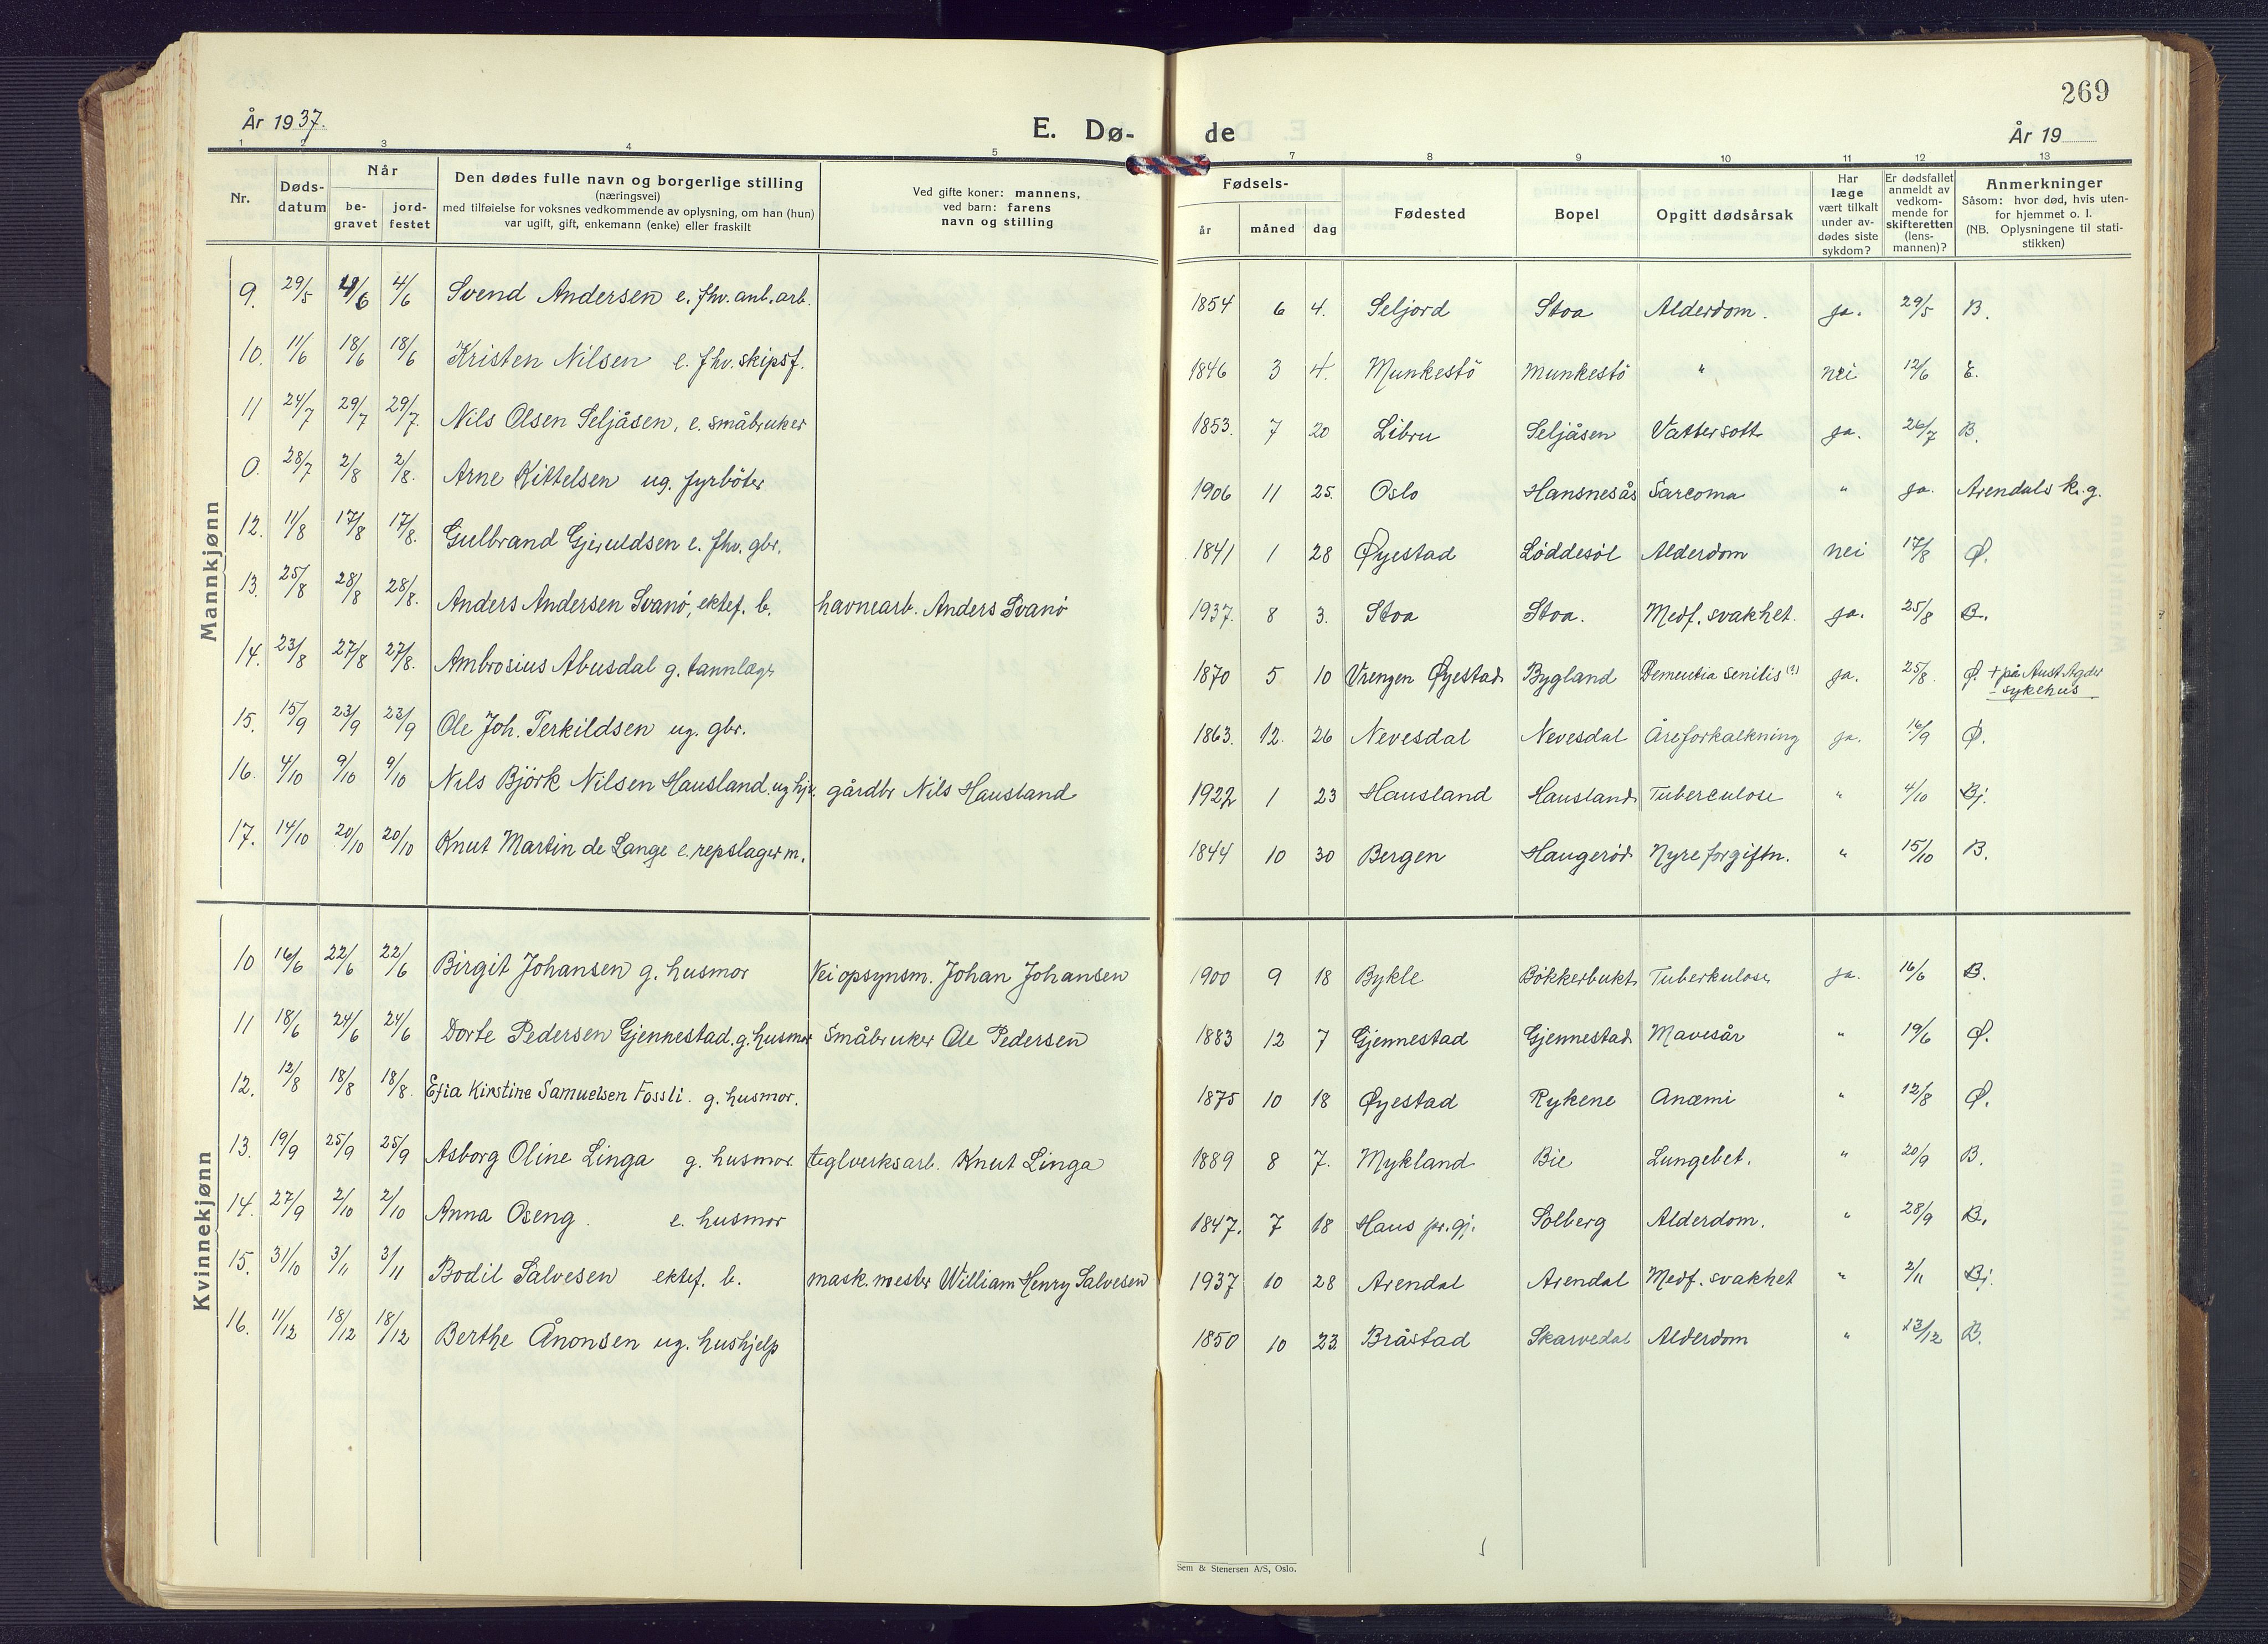 269
År 1937.
E. Dø-
de
År 19
1 2 3 4 5
7 8 9 10 11 12 13
Nr.
Døds-
datum
Når
be-
gravet
jord-
festet
Den dødes fulle navn og borgerlige stilling
(næringsvei)
med tilføielse for voksnes vedkommende av oplysning, om han (hun)
var ugift, gift, enkemann (enke) eller fraskilt
Ved gifte koner: mannens,
ved barn: farens
navn og stilling
Fødsels-
år måned dag
Fødested
Bopel
Opgitt dødsårsak
Har
læge
vært tilkalt
under av-
dødes siste
sykdom?
Er dødsfallet
anmeldt av
vedkom-
mende for
skifteretten
(lens-
mannen)?
Anmerkninger
Såsom: hvor død, hvis uten-
for hjemmet o. l.
(NB. Oplysningene til stati-
stikken)
Mannkjønn
9. 29/5 4/6 4/6 Svend Andersen e. fhv. anl. arb. 1854 6 4. Seljord Stoa Alderdom. ja. 29/5 B.
10. 11/6 18/6 18/6 Kristen Nilsen e. fhv. skipsf. 1846 3 4. Munkestö Munkestö " nei 12/6 E.
11 24/7 29/7 29/7. Nils Olsen Seljåsen, e. småbruker 1853. 7 20 Libru Seljåsen Vattersott ja. 26/7 B.
0. 28/7 2/8 2/8. Arne Kittelsen ug. fyrböter 1906 11 25. Oslo Hansnesås Sarcoma " ja. Arendals k.g.
12. 11/8 17/8 17/8. Gulbrand Gjeruldsen e. fhv. gbr. 1841 1 28 Øyestad Løddesøl Alderdom nei 17/8 Ø.
13. 25/8 28/8 28/8. Anders Andersen Svanø, ektef. b. havnearb. Anders Svanø 1937. 8 3. Stoa Stoa. Medf. svakhet. ja. 25/8 B.
14. 23/8 27/8 27/8. Ambrosius Abusdal g. tannlæge 1870 5 10 Vrengen Øyestad Bygland Dementia senilis (?) ja. 25/8. Ø. + på Aust Agder
sykehus
15. 15/9 23/9 23/9 Ole Joh. Terkildsen ug. gbr. 1863. 12. 26 Nevesdal Nevesdal Åreforkalkning ja. 16/9 Ø.
16. 4/10 9/10 9/10 Nils Björk Nilsen Hausland. ug hj. gårdbr Nils Hausland 1922 1 23 Hausland Hausland Tuberculose " 4/10 Bj.
17. 14/10 20/10 20/10 Knut Martin de Lange e. repslager m. 1844 10 30 Bergen Haugerød Nyreforgiftn. " 15/10 B.
Kvinnekjønn
10 16/6 22/6 22/6 Birgit Johansen g. husmor Veiopsynsm. Johan Johansen 1900 9 18 Bykle Bøkkerbukt Tuberkulose ja. 16/6 B.
11 18/6 24/6 24/6 Dorte Pedersen Gjennestad. g. husmor Småbruker Ole Pedersen 1883 12 7 Gjennestad Gjennestad Mavesår " 19/6 Ø.
12. 12/8 18/8 18/8. Efia Kirstine Samuelsen Fossli. g. husmor. 1875 10 18 Øyestad Rykene Anæmi " 12/8 Ø.
13. 19/9 25/9 25/9 Asborg Oline Linga g. husmor. teglverksarb. Knut Linga 1889 8 7. Mykland Bie Lungebet. " 20/9 B.
14. 27/9 2/10 2/10 Anna Oseng. e. husmor 1847. 7 18 Haus pr.gj. Solberg Alderdom. " 28/9 B.
15. 31/10 3/11 3/11 Bodil Salvesen ektef. b. mask. mester William Henry Salvesen 1937 10 28 Arendal Arendal Medf. svakhet " 2/11 Bj.
16. 11/12 18/12 18/12 Berthe Ånonsen ug. hushjelp 1850 10 23 Bråstad Skarvedal Alderdom " 13/12 B.
Sem & Stenersen A/S, Oslo.